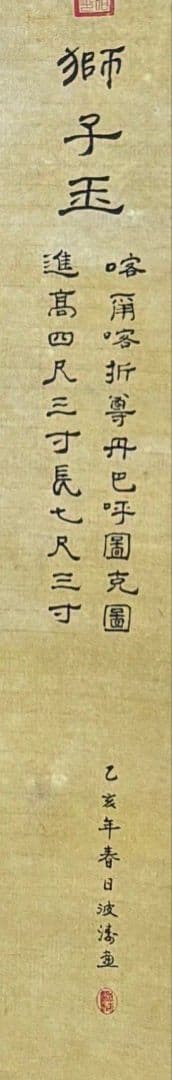 獅子玉
喀爾喀折尊丹巴呼圖克圖
進高四尺三寸長七尺三寸
乙亥年春日波濤畫